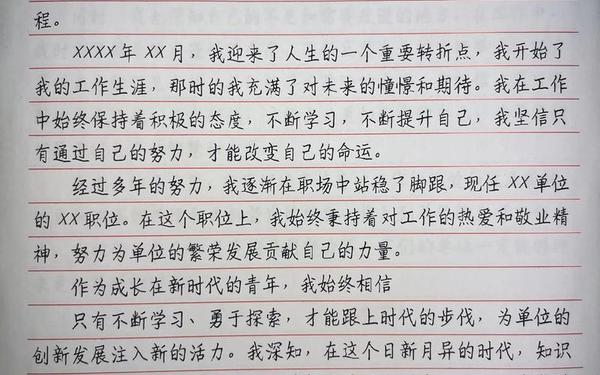 程。
XXXX年XX月，我迎来了人生的一个重要转折点，我开始了
我的工作生涯，那时的我充满了对未来的憧憬和期待。我在工作
中始终保持着积极的态度，不断学习，不断提升自己，我坚信只
有通过自己的努力，才能改变自己的命运。
经过多年的努力，我逐渐在职场中站稳了脚跟，现任XX单位
的XX职位。在这个职位上，我始终秉持着对工作的热爱和敬业精
神，努力为单位的繁荣发展贡献自己的力量。
作为成长在新时代的青年，我始终相信
只有不断学习、勇于探索，才能跟上时代的步伐，为单位的
创新发展注入新的活力。我深知，在这个日新月异的时代，知识